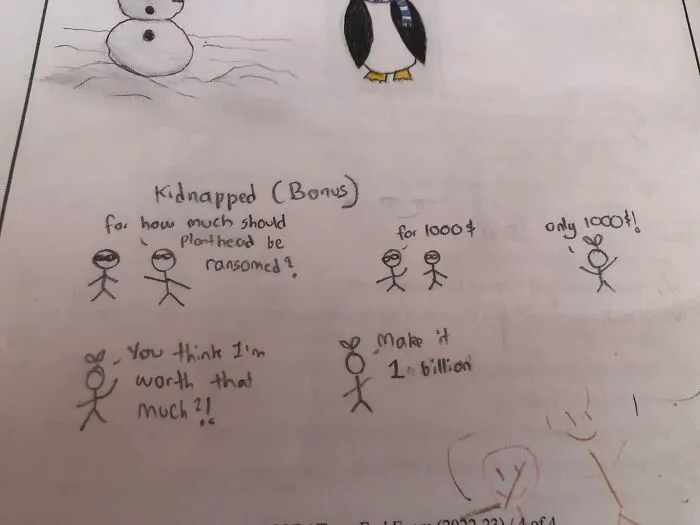 Kidnapped (Bonus)
for how much should
planthead be
ransomed?
for 1000$
only 1000$!
You think I'm
worth that
much?!
Make it
1 billion
(2022-23)